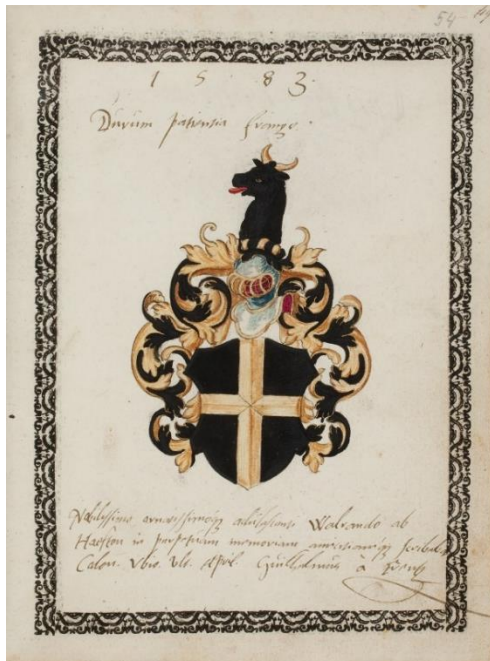 54
1 5 8 3.
Durum patientia frango.
Nobilissimo ornatissimoq adolescenti Walrando ab
Haeften in perpetuam memoriam amicitiamq scribeb.
Colon. Ubio. Ult. Apl. Guilhelmus à